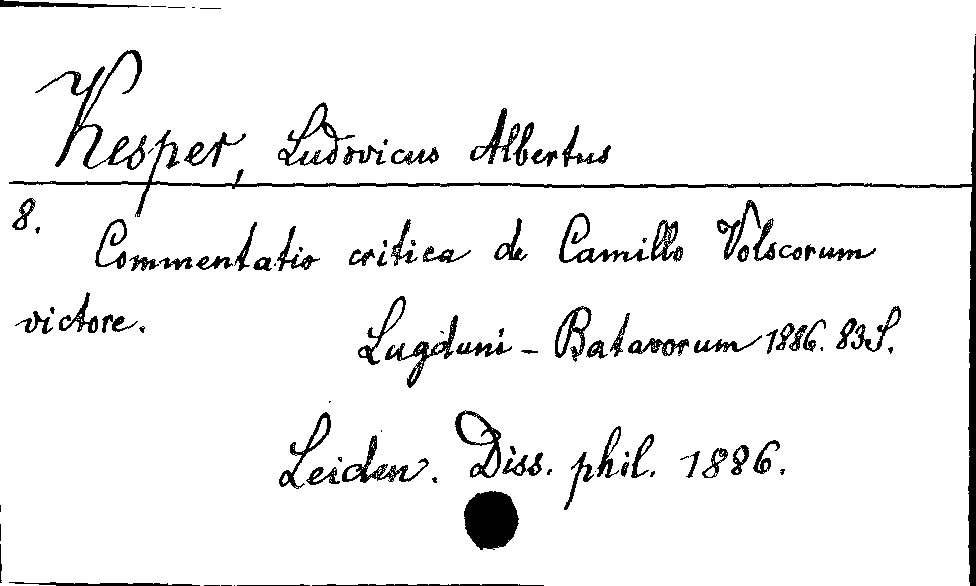 Kesper, Ludovicus Albertus
8.
Commentatio critica de Camillo Volscorum
victore.
Lugduni - Batavorum 1886. 83 S.
Leiden. Diss. phil. 1886.